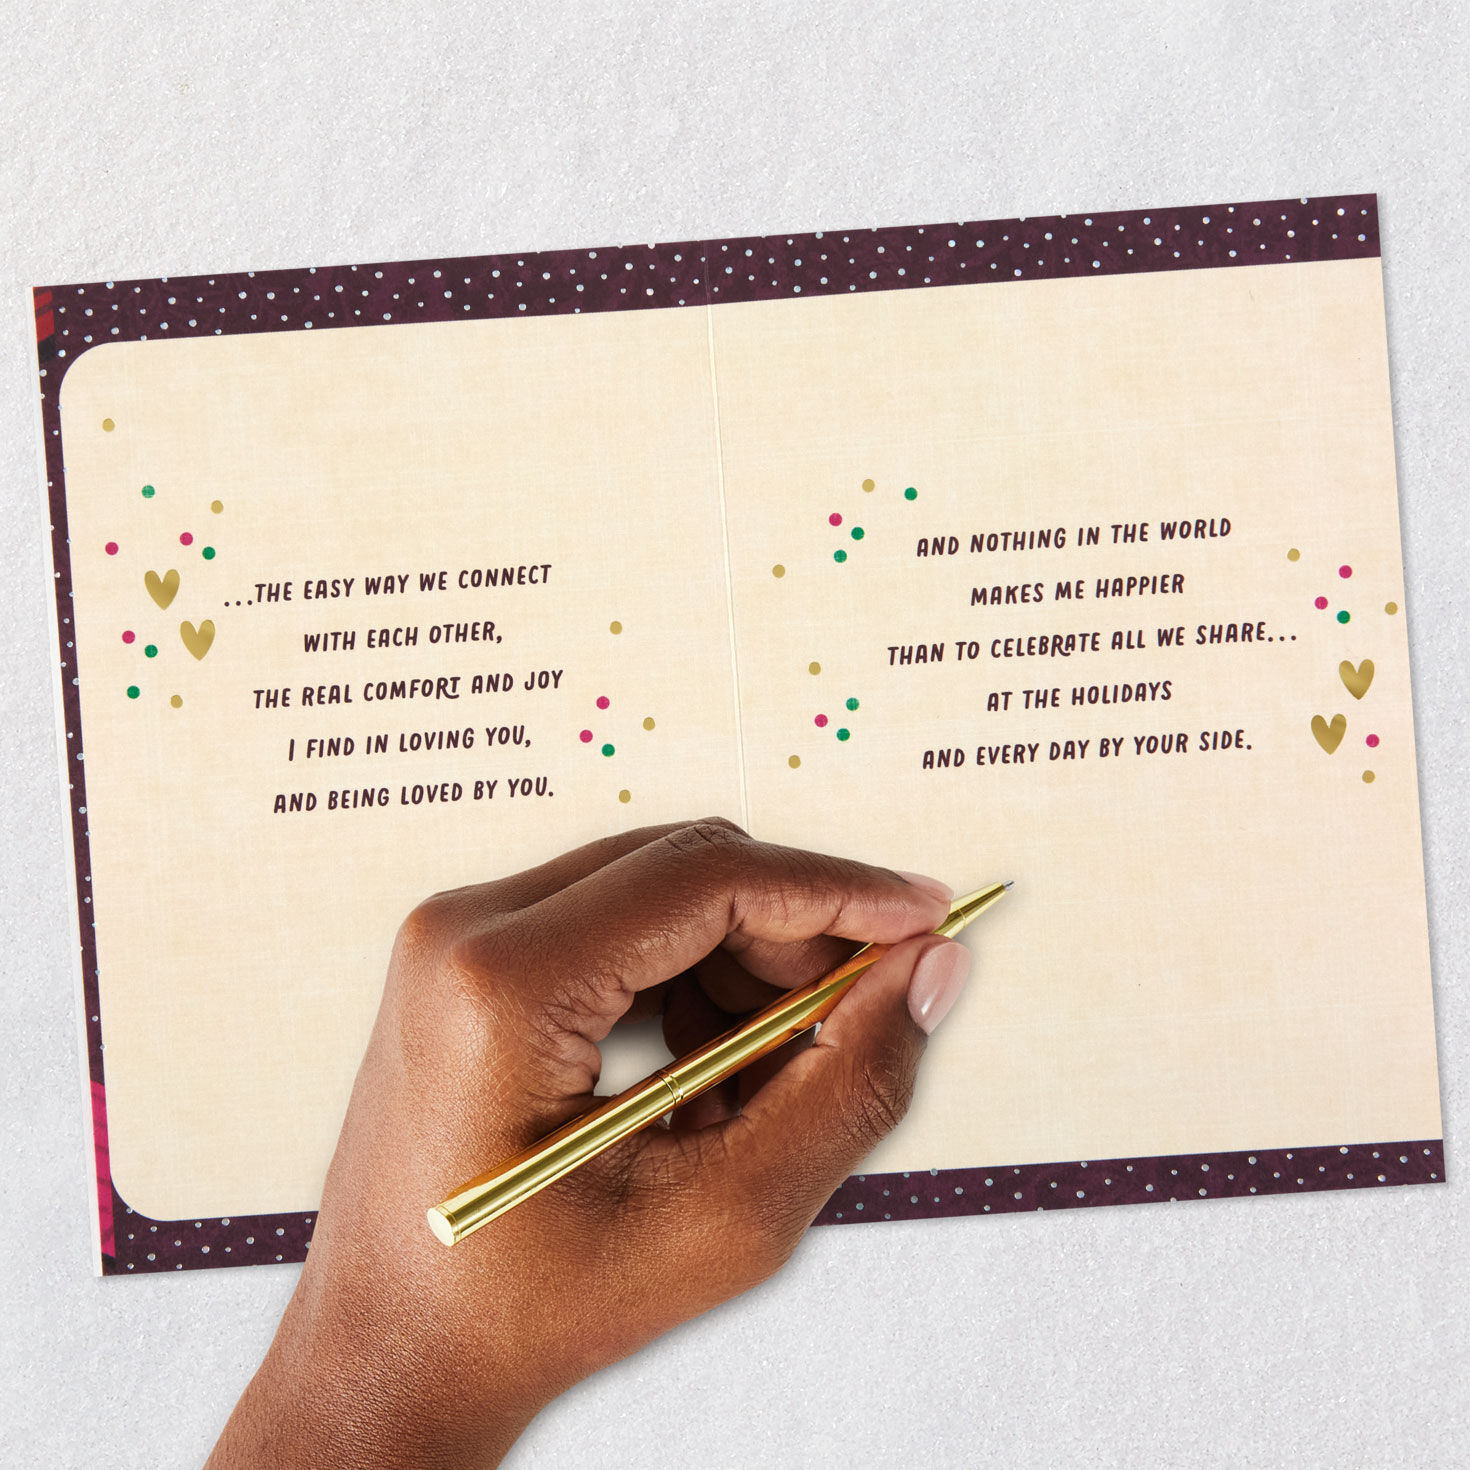 ...THE EASY WAY WE CONNECT
WITH EACH OTHER,
THE REAL COMFORT AND JOY
I FIND IN LOVING YOU,
AND BEING LOVED BY YOU.
AND NOTHING IN THE WORLD
MAKES ME HAPPIER
THAN TO CELEBRATE ALL WE SHARE...
AT THE HOLIDAYS
AND EVERY DAY BY YOUR SIDE.